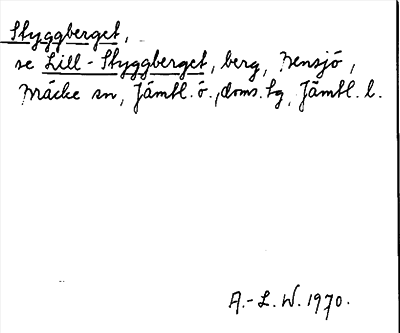 Styggberget,
se Lill-Styggberget, berg, Bensjö,
Bräcke sn, Jämtl. ö., doms. tg, Jämtl. l.
A.-L. W. 1970.